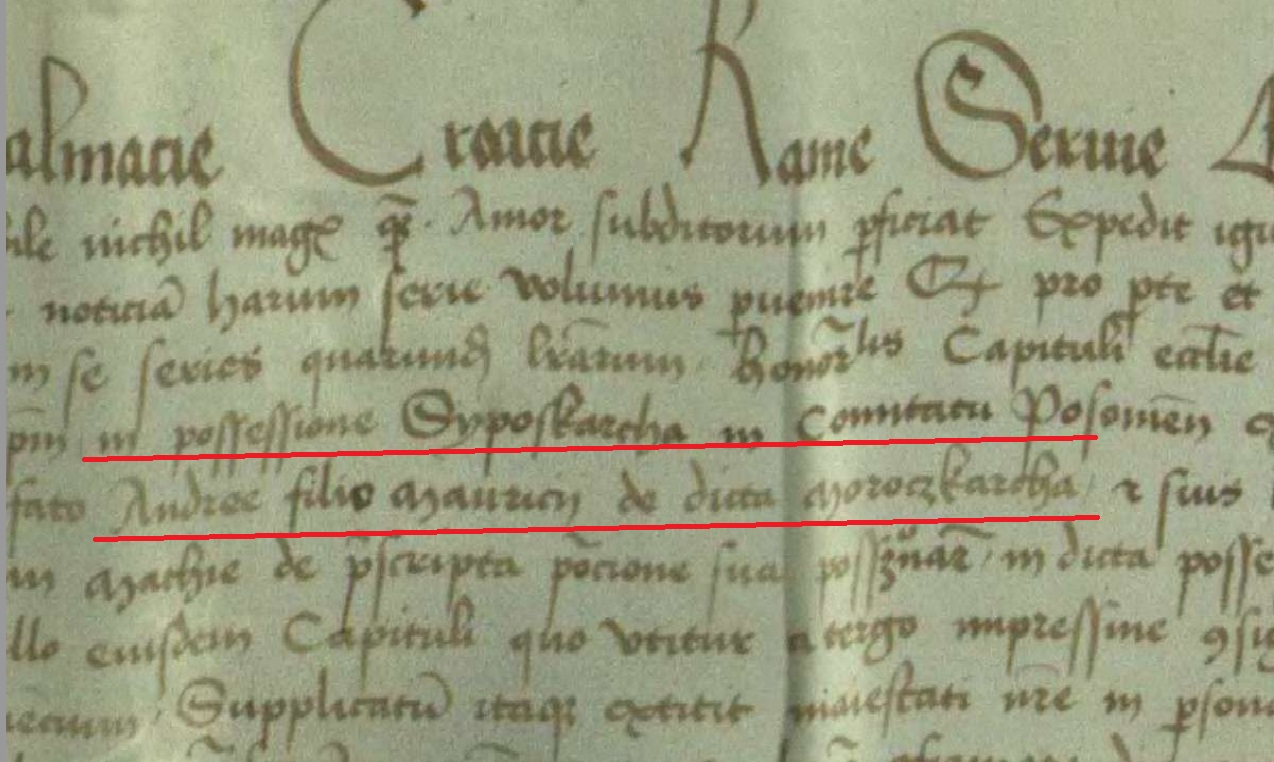 almacie Croacie Rame Seruie
nichil mag qm Amor subditorum pficiat Expedit
noticiā harum serie volumus puenire Q pro pte et
m se series quarund lrarum honorlis Capituli ecclie
in possessione Syposkarcha in Comitatu Posonien
fato Andree filio Mauricij de dicta Moroczkarcha et suis
Mathie de pscripta porcione sua possonar in dicta posse
llo eiusdem Capituli quo vtitur a tergo impressiue
Supplicatū itaq extitit maiestati nre in pson